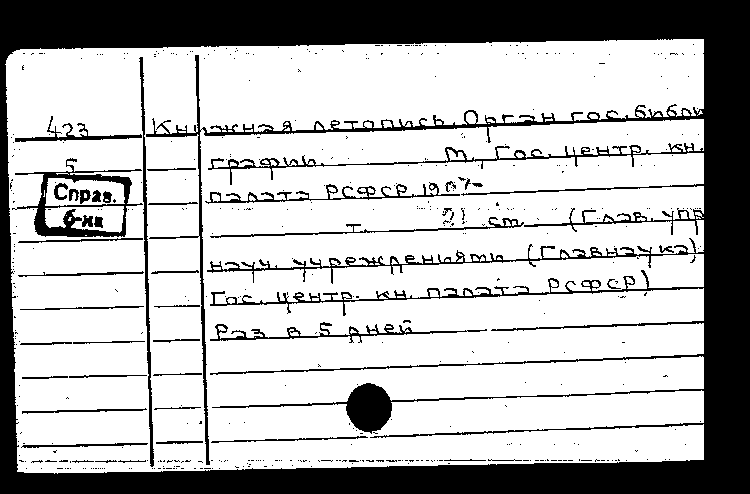 423 Книжная летопись. Орган гос. библи
5 графии. М., Гос. центр. кн.
Справ.
б-ка
палата РСФСР, 1907-
т. 21 см (Глав. упр
науч. учреждениями (Главнаука)
Гос. центр. кн. палата РСФСР)
Раз в 5 дней